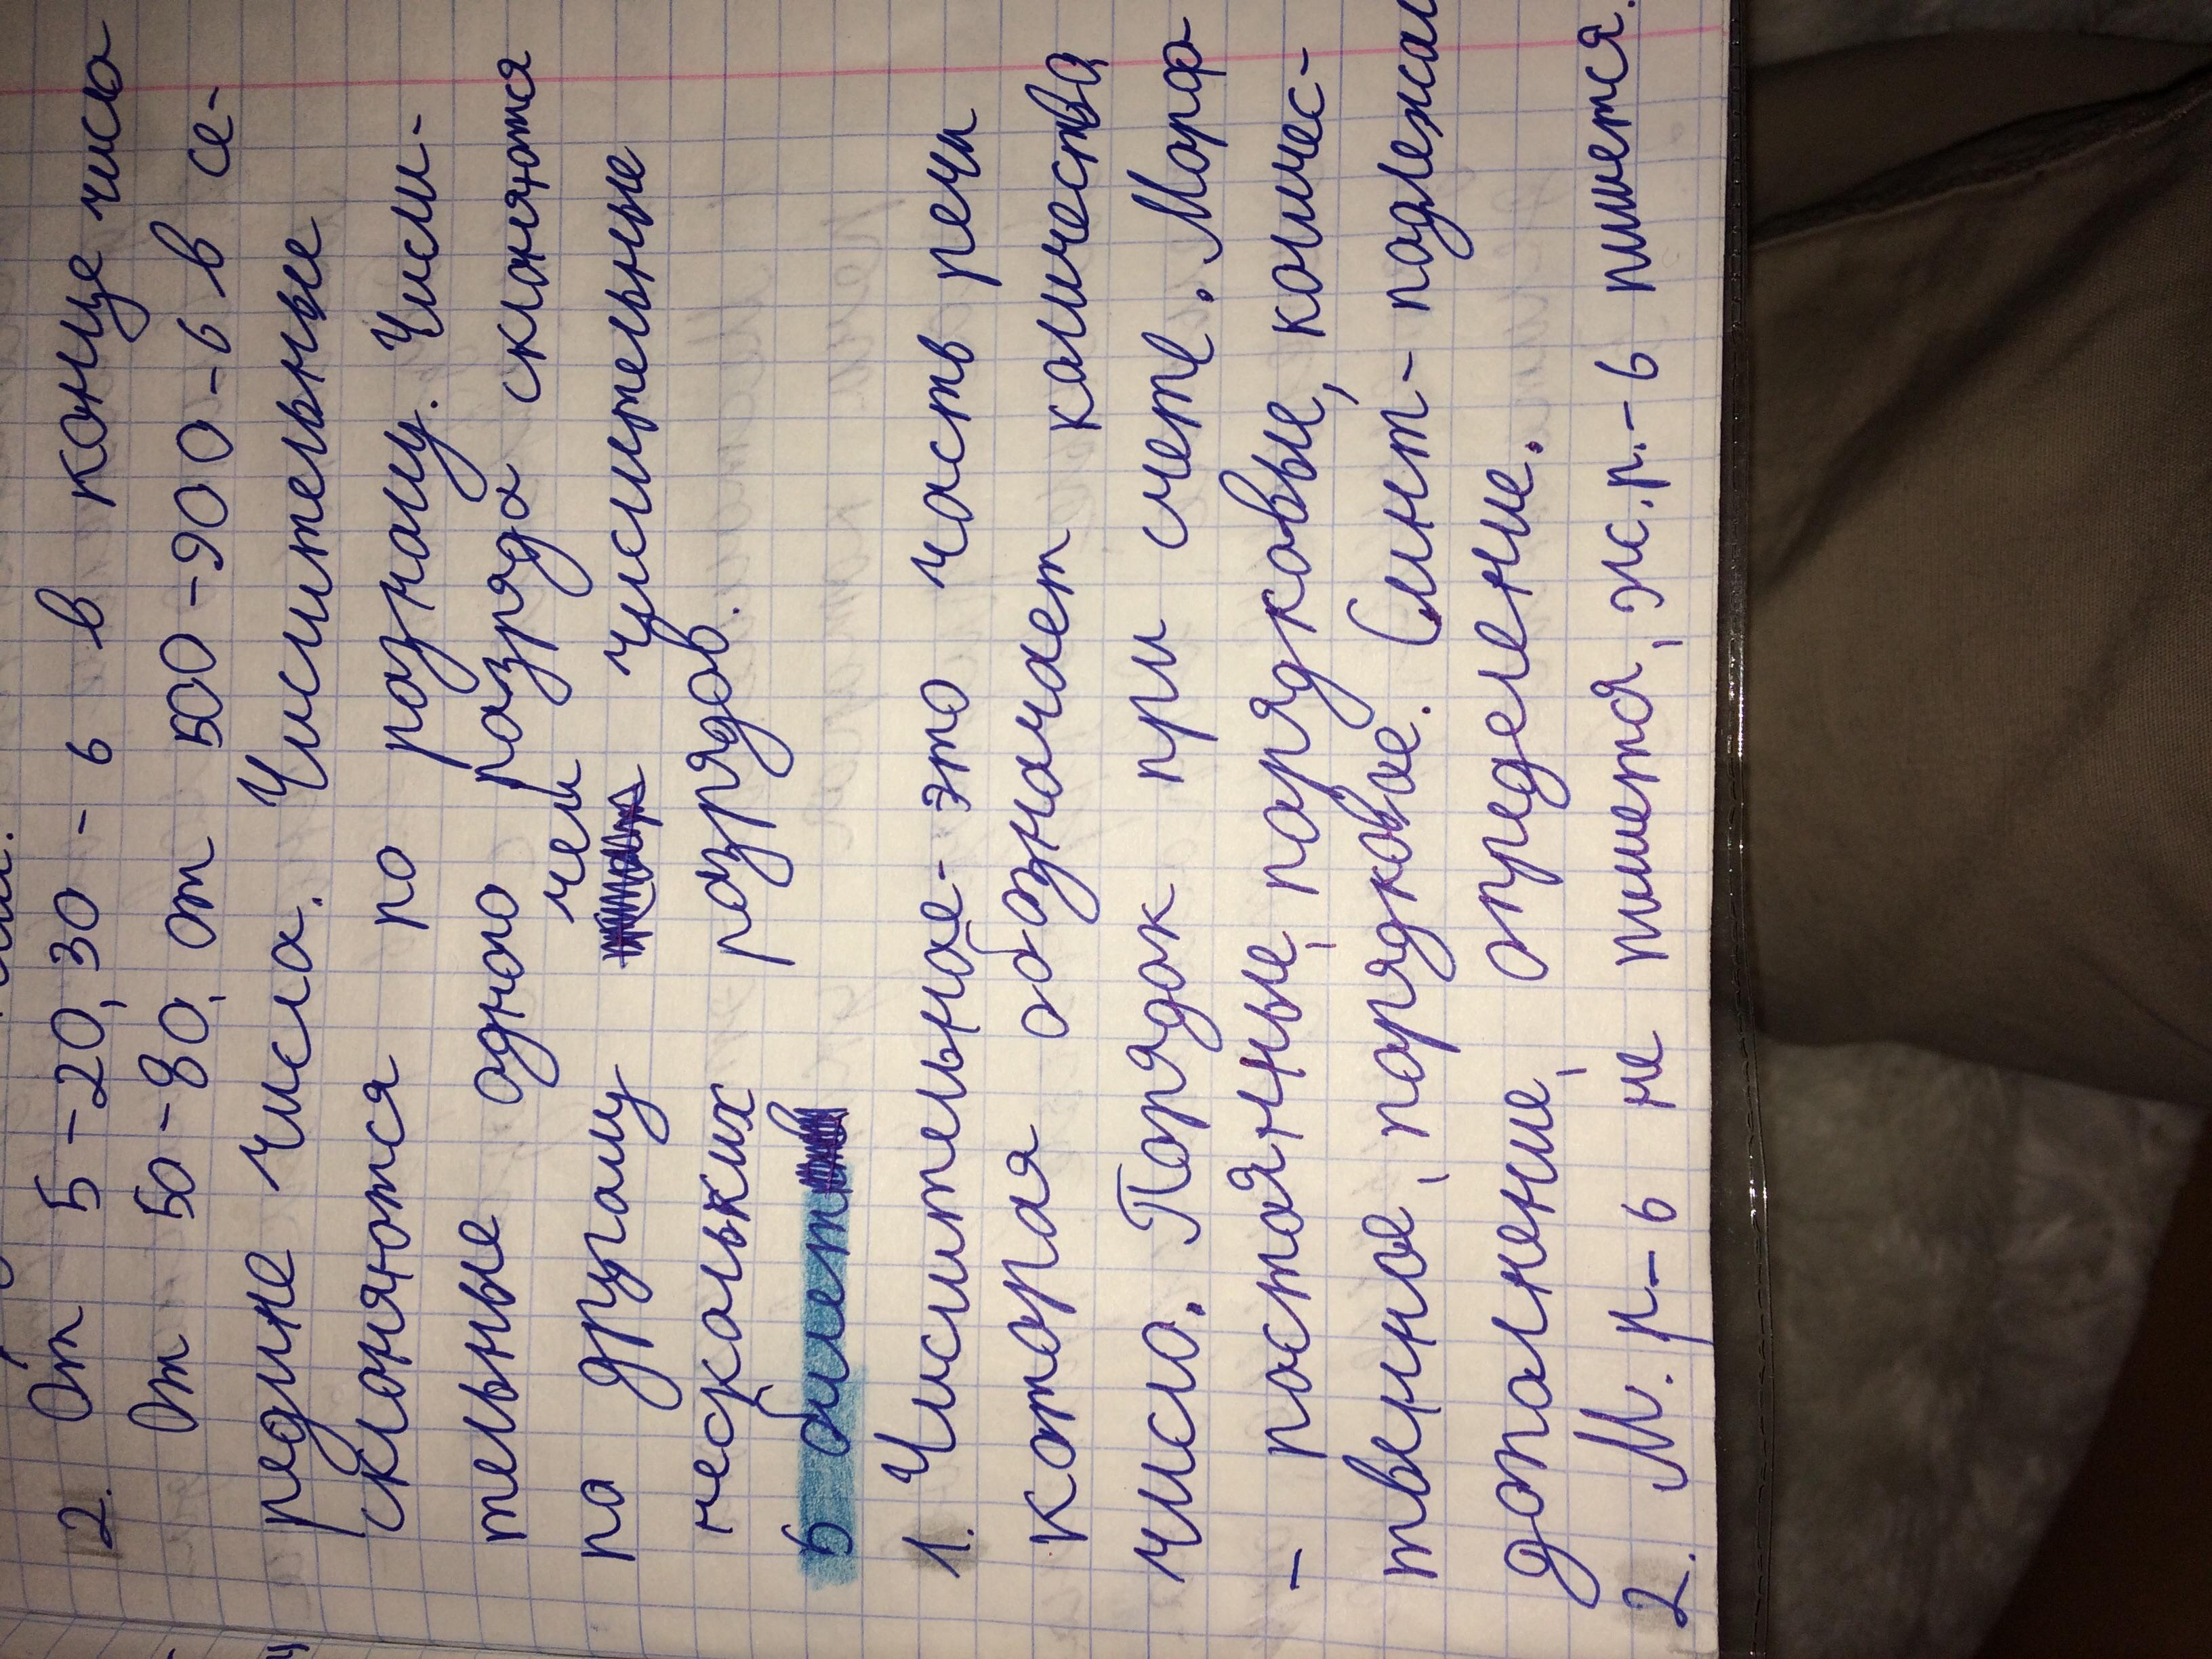 2. От 5-20, 30 - ь в конце числа
От 50-80, от 500-900 - ь в се-
редине числа. Числительные
склоняются по разному. Числи-
тельные одного разряда склоняются
по другому чем числительные
нескольких разрядов.
5 билет
1. Числительное - это часть речи
которая обозначает количества
число. Порядок при счете. Морф
- постоянные, порядковые, количес-
твенное, порядковое. Синт - подлежа
дополнение, определение.
2. М. р - ь не пишется, ж. р. - ь пишется.